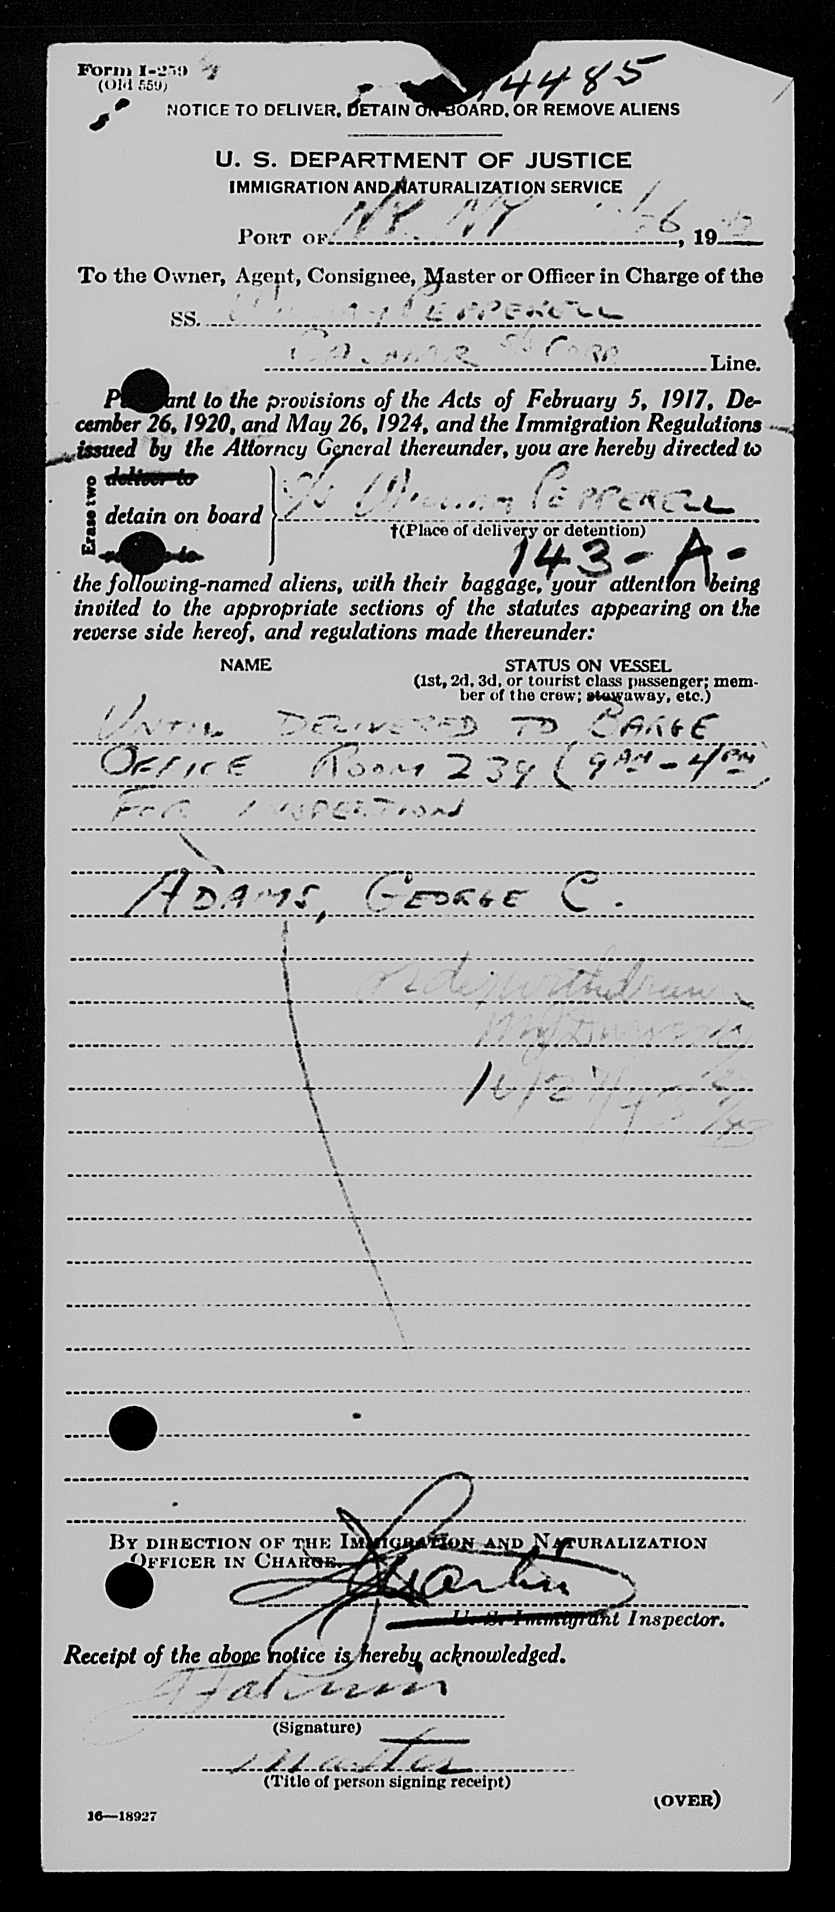 Form I-259
(Old 559)
14485
NOTICE TO DELIVER, DETAIN ON BOARD, OR REMOVE ALIENS
U. S. DEPARTMENT OF JUSTICE
IMMIGRATION AND NATURALIZATION SERVICE
PORT OF NY NY , 19
To the Owner, Agent, Consignee, Master or Officer in Charge of the
SS. WILLIAM PEPPERELL
CALMAR SS CORP Line.
Pursuant to the provisions of the Acts of February 5, 1917, De-
cember 26, 1920, and May 26, 1924, and the Immigration Regulations
issued by the Attorney General thereunder, you are hereby directed to
Erase two
deliver to
detain on board S/S WILLIAM PEPPERELL
†(Place of delivery or detention)
143-A-
the following-named aliens, with their baggage, your attention being
invited to the appropriate sections of the statutes appearing on the
reverse side hereof, and regulations made thereunder:
NAME STATUS ON VESSEL
(1st, 2d, 3d, or tourist class passenger; mem-
ber of the crew; stowaway, etc.)
UNTIL DELIVERED TO BARGE
OFFICE ROOM 239 (9AM-4PM)
FOR INSPECTION
ADAMS, GEORGE C.
order withdrawn
10/27/43
BY DIRECTION OF THE IMMIGRATION AND NATURALIZATION
OFFICER IN CHARGE.
Martin
Immigrant Inspector.
Receipt of the above notice is hereby acknowledged.
(Signature)
Master
(Title of person signing receipt)
(OVER)
16—18927